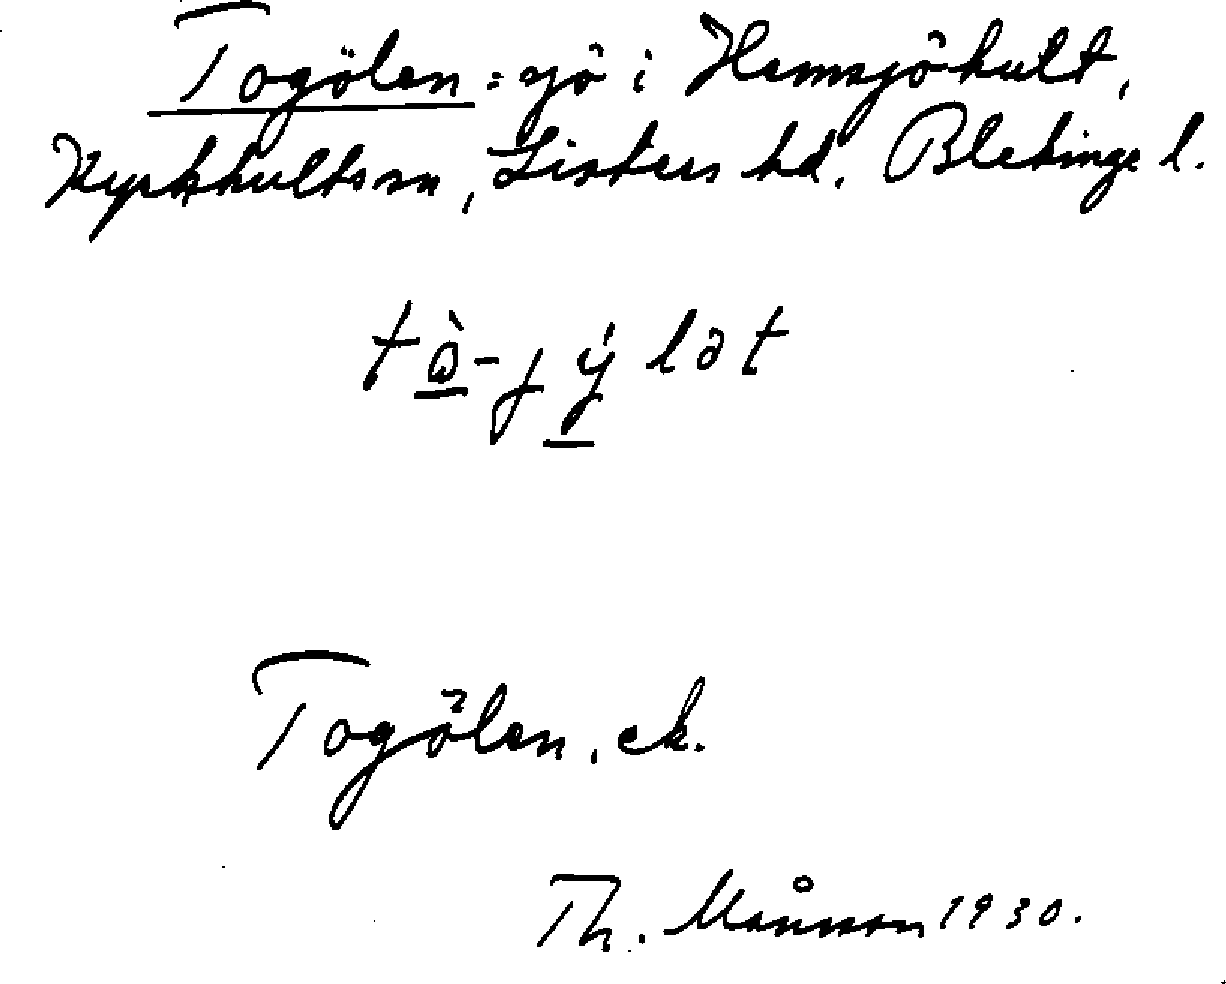 Togölen = sjö i Hemsjöhult,
Kyrkhults sn, Listers hd. Blekinge l.
tò̱-jý̱lət
Togölen, ek.
Th. Månsson 1930.